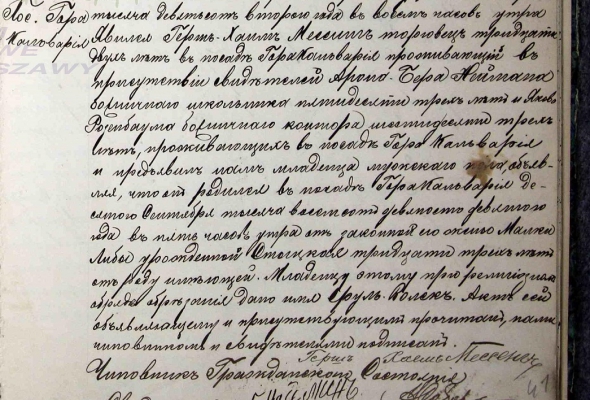 Пос. Гора Кальварія
тысяча девятьсотъ второго года въ восемь часовъ утра
явился Гершъ-Хаимъ Мессингъ торговецъ тридцати
двухъ лѣтъ въ посадѣ Гора Кальварія проживающій въ
присутствіи свидѣтелей Арона-Бера Неймана
божничнаго школьника пятидесяти трехъ лѣтъ и Якова
Розенбаума божничнаго кантора шестидесяти трехъ
лѣтъ, проживающихъ въ посадѣ Гора Кальварія
и предъявилъ намъ младенца мужскаго пола, объяв-
ляя, что онъ родился въ посадѣ Гора Кальварія де-
сятого Сентября тысяча восемсотъ девяносто девятого
года въ пять часовъ утра отъ законной его жены Малки
Либы урожденной тридцати трехъ лѣтъ
отъ роду имѣющей. Младенцу этому при религіозномъ
обрядѣ обрѣзанія дано имя Сруль. Актъ сей
объявляющему и присутствующимъ прочитанъ, нами
чиновникомъ и свидѣтелями подписанъ.
Чиновникъ Гражданского Состоянія